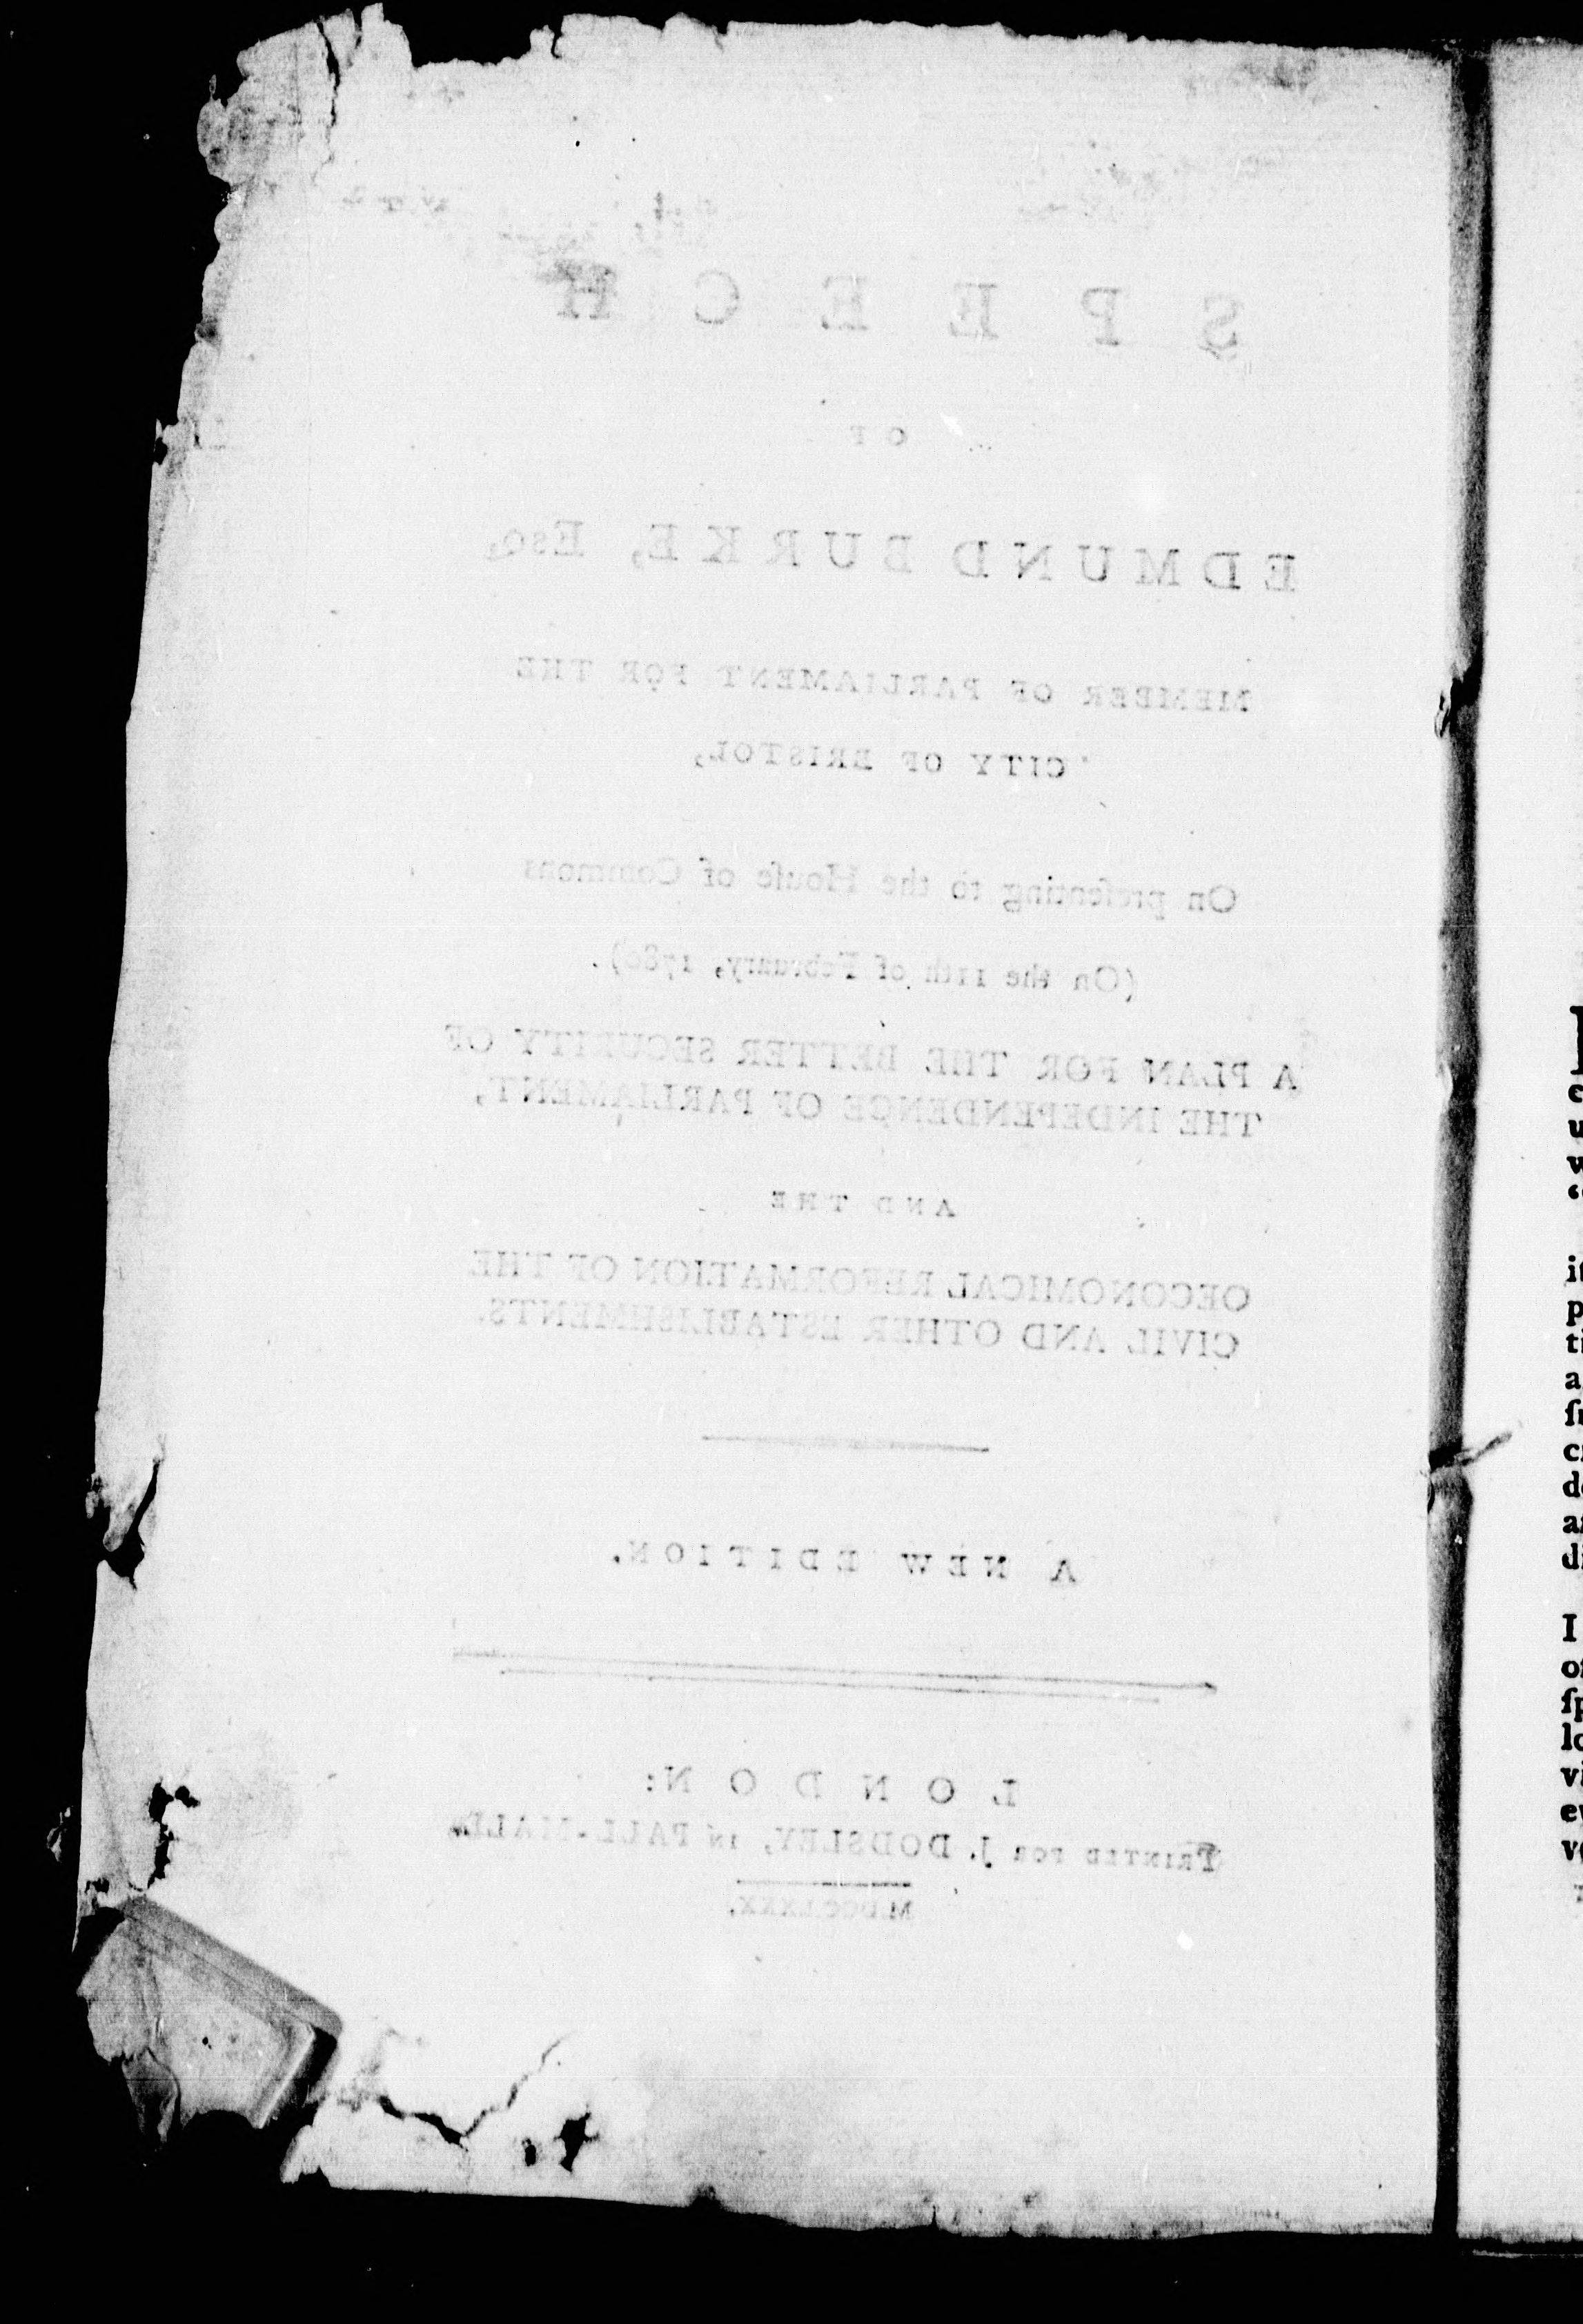 SPEECH
OF
EDMUND BURKE, Esq.
MEMBER OF PARLIAMENT FOR THE
CITY OF BRISTOL,
On preſenting to the Houſe of Commons
(On the 11th of February, 1780)
A PLAN FOR THE BETTER SECURITY OF
THE INDEPENDENCE OF PARLIAMENT,
AND THE
OECONOMICAL REFORMATION OF THE
CIVIL AND OTHER ESTABLISHMENTS.
A NEW EDITION.
LONDON:
PRINTED FOR J. DODSLEY, IN PALL-MALL.
MDCCLXXX.